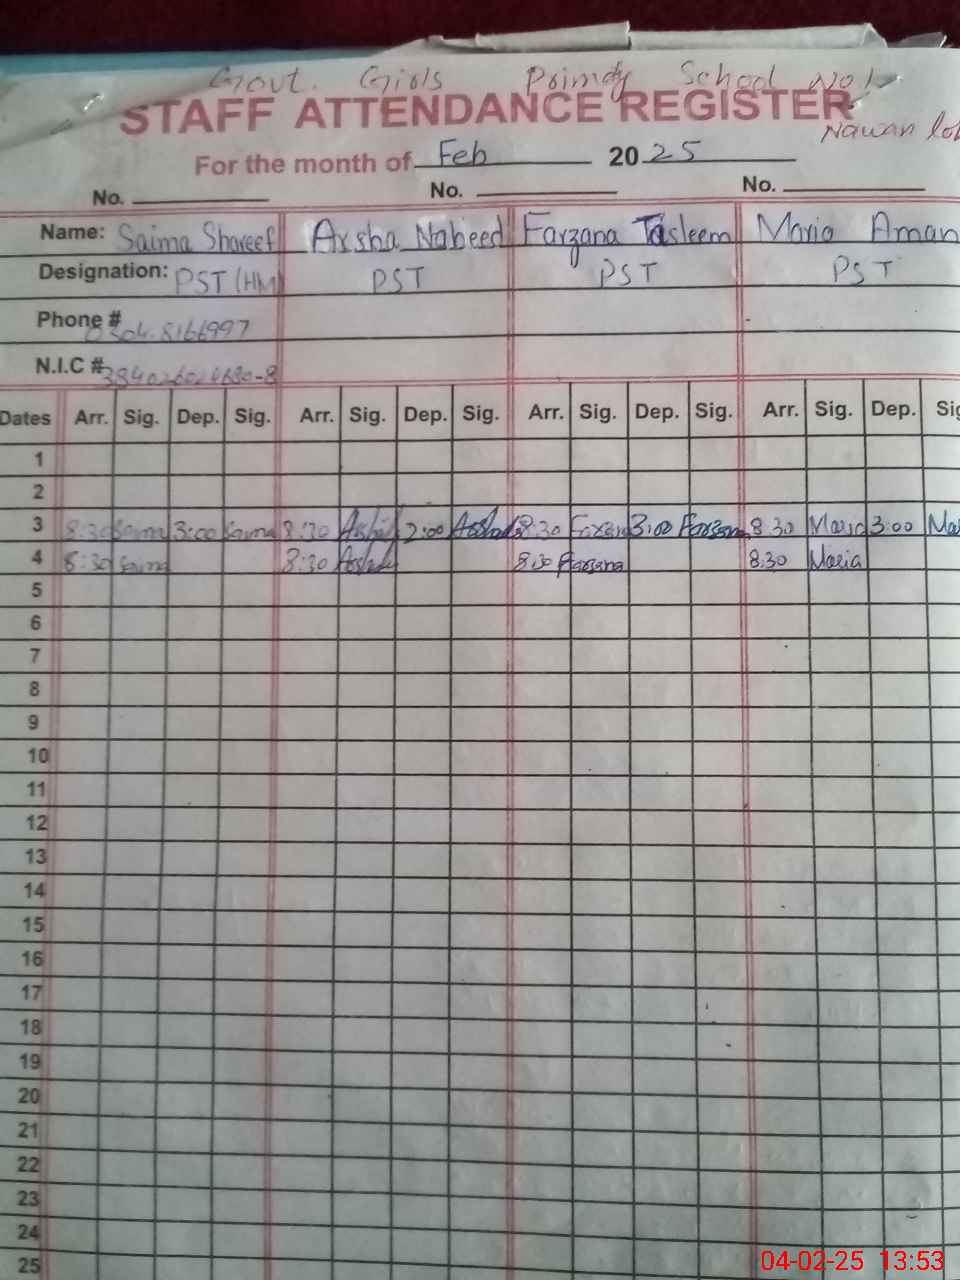 Govt. Girls Primary School No 1
STAFF ATTENDANCE REGISTER
Nawan
For the month of Feb 2025
No. No. No.
Name: Saima Shareef Arsha Nabeed Farzana Tasleem Maria Aman
Designation: PST (HM) PST PST PST
Phone #
N.I.C #
Dates Arr. Sig. Dep. Sig. Arr. Sig. Dep. Sig. Arr. Sig. Dep. Sig. Arr. Sig. Dep. Sig
1
2
3 8:30 Saima 3:00 Saima 8:30 3:00 8:30 3:00 Farzana 8:30 Maria 3:00 Ma
4 8:30 Saima 8:30 8:30 Farzana 8:30 Maria
5
6
7
8
9
10
11
12
13
14
15
16
17
18
19
20
21
22
23
24
25
04-02-25 13:53